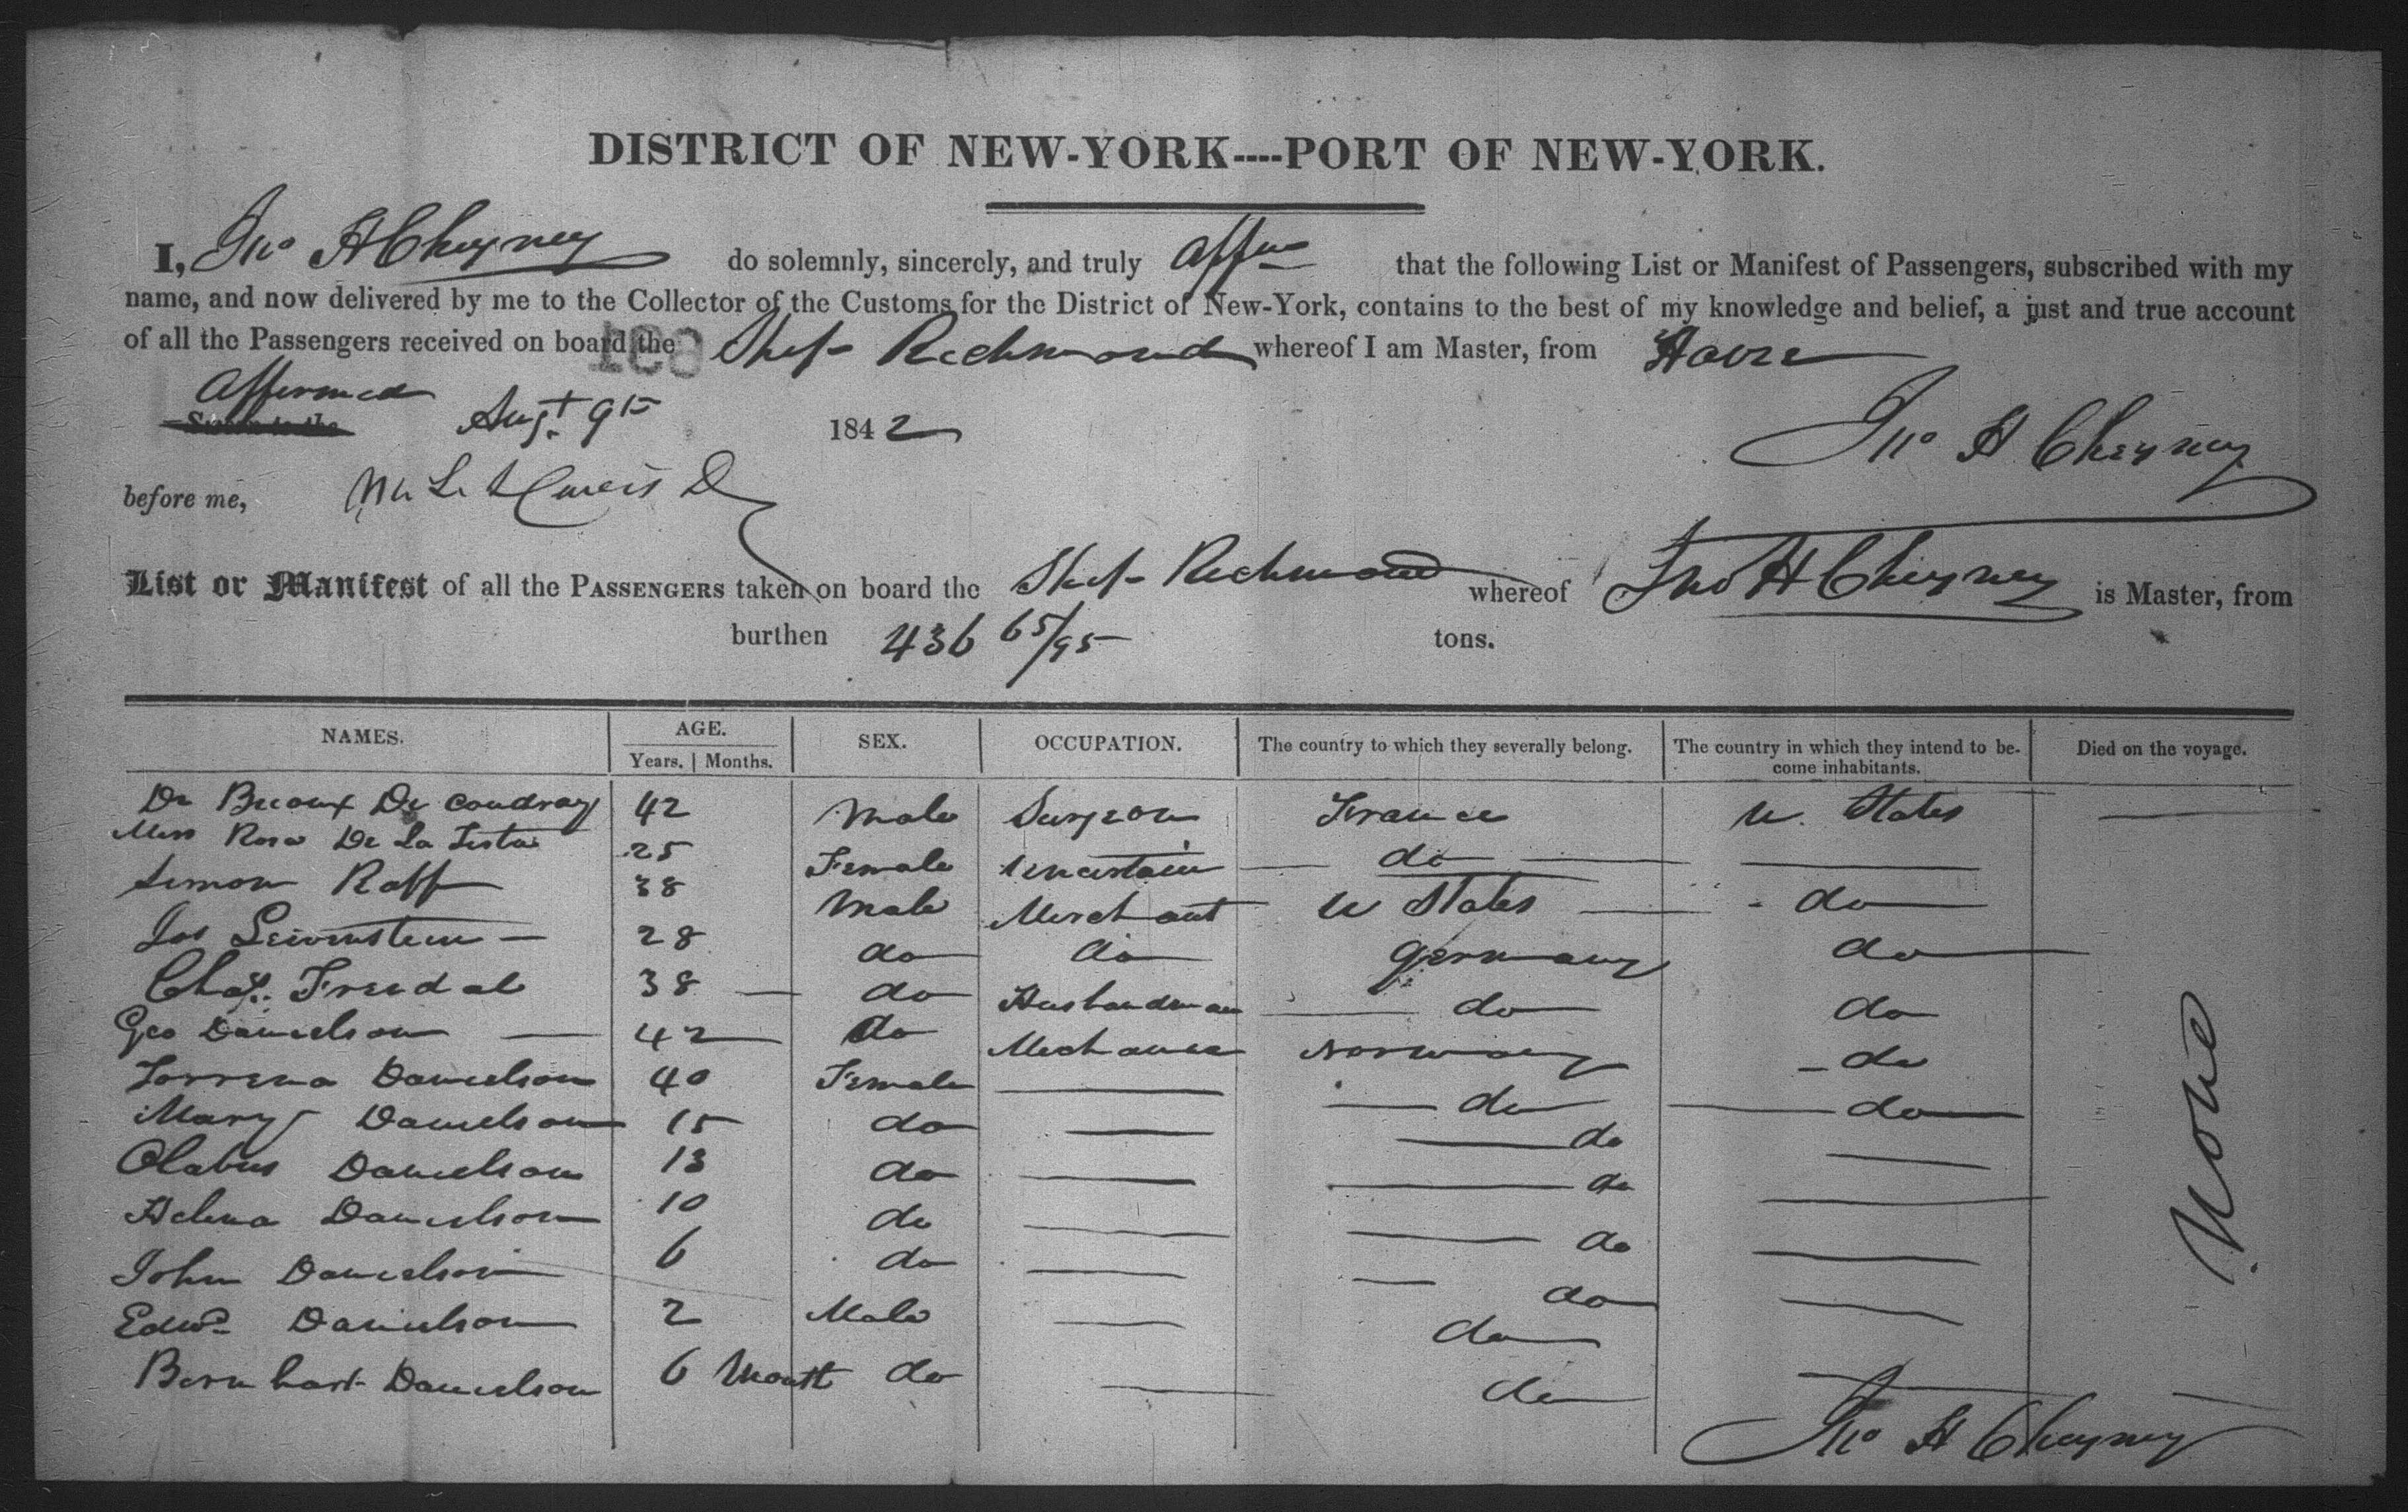 DISTRICT OF NEW-YORK----PORT OF NEW-YORK.
I, Jno H Cheyney do solemnly, sincerely, and truly affirm that the following List or Manifest of Passengers, subscribed with my
name, and now delivered by me to the Collector of the Customs for the District of New-York, contains to the best of my knowledge and belief, a just and true account
of all the Passengers received on board the Ship Richmond whereof I am Master, from Havre
Affirmed
Sworn to the Augt 9th 1842
Jno H Cheyney
before me,
List or Manifest of all the PASSENGERS taken on board the Ship Richmond whereof Jno H Cheyney is Master, from
burthen 436 65/95 tons.
NAMES. AGE. SEX. OCCUPATION. The country to which they severally belong. The country in which they intend to be- Died on the voyage.
Years. Months. come inhabitants.
Dr De Coudray 42 Male Surgeon France U. States
Miss Rosa De La 25 Female Uncertain do
Simon Raff 38 Male Merchant U States do
Jos Leivenstein 28 do do Germany do
Chas. Freudal 38 do Husbandman do do
Geo Danielson 42 do Mechanic Norway do
Torrena Danielson 40 Female do do
Mary Danielson 15 do do
Olabus Danielson 13 do do
Helena Danielson 10 do do
John Danielson 6 do do
Edwd Danielson 2 Male do
Bernhart Danielson 6 Month do do
None
Jno H Cheyney